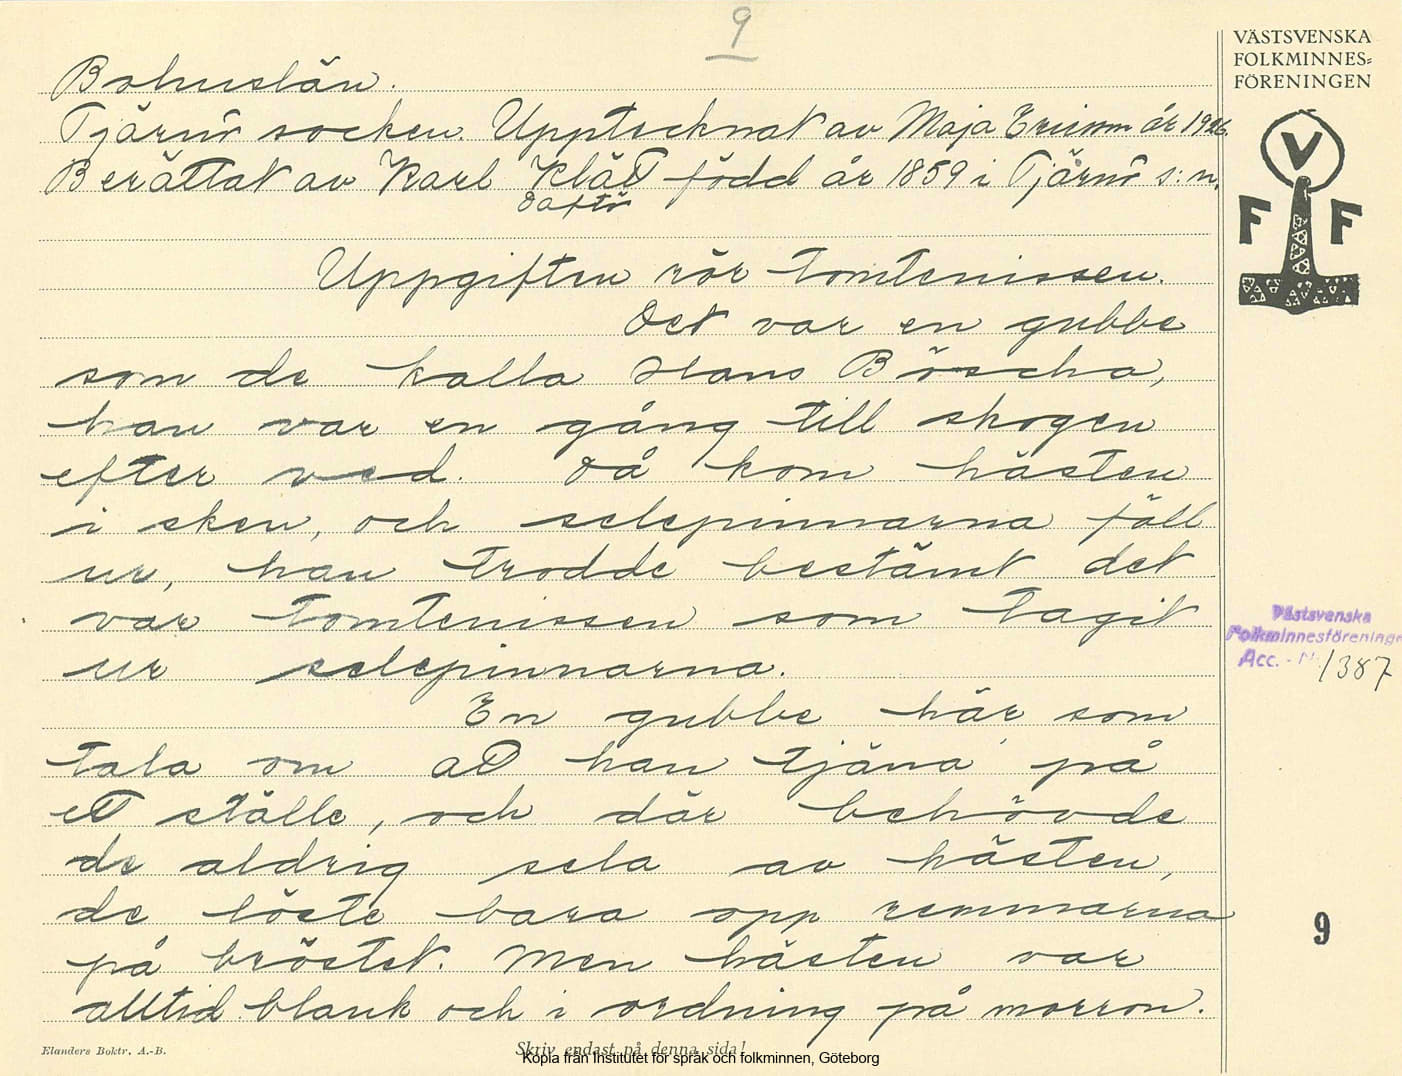 9
Bohuslän.
Tjärnö socken. Upptecknat av Maja Ericson år 1926.
Berättat av Karl Klätt född år 1859 i Tjärnö s:n.
Daftö
Uppgiften rör tomtenissen.
Det var en gubbe
som de kalla Hans Böscha,
han var en gång till skogen
efter ved. Då kom hästen
i sken, och selepinnarna föll
ur, han trodde bestämt det
var tomtenissen som tagit
ur selepinnarna.
En gubbe här som
tala om att han tjäna på
ett ställe, och där behövde
de aldrig sela av hästen,
de löste bara opp remmarna
på bröstet. Men hästen var
alltid blank och i ordning på morron.
Elanders Boktr. A.-B.
Skriv endast på denna sida!
Kopia från Institutet för språk och folkminnen, Göteborg
VÄSTSVENSKA
FOLKMINNES=
FÖRENINGEN
V
F F
Västsvenska
Folkminnesföreninge
Acc. - N: 1387
9